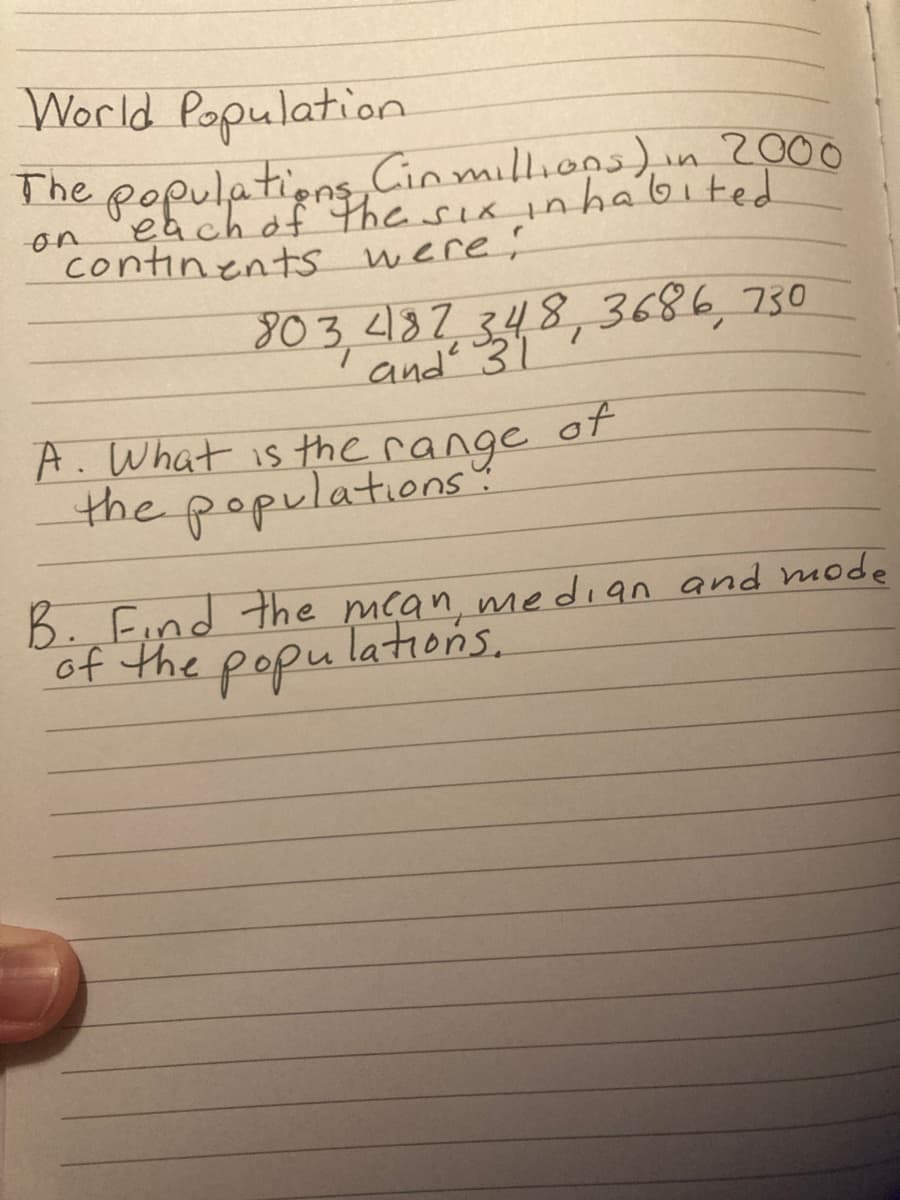 World Population
The populations (in millions) in 2000
on each of the six inhabited
continents were:
803, 487, 348, 3686, 730
and 31
A. What is the range of
the populations?
B. Find the mean, median and mode
of the populations.